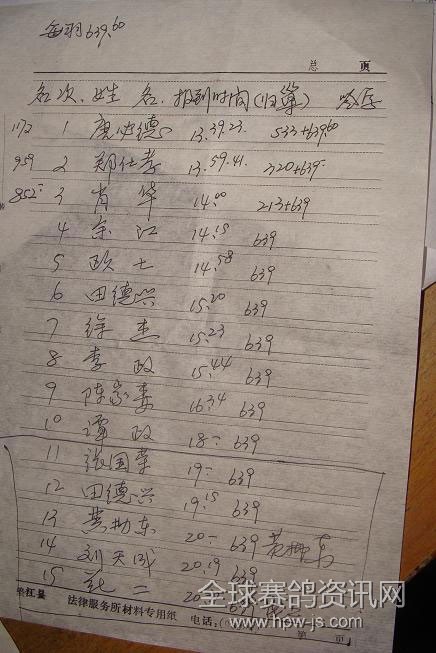 每羽639.60
总 页
名次. 姓 名. 报到时间(归巢) 奖金
1172 1 唐必德 13.39.23. 533+639.60
959 2 郑仕孝 13.59.41. 320+639-
852- 3 肖华 14.00 213+639
4 余江 14.15 639
5 欧七 14.58 639
6 田德兴 15.20 639
7 徐杰 15.23 639
8 李政 15.44 639
9 陈家 16.34 639
10 谭政 18- 639
11 张国 19- 639
12 田德兴 19.15 639
13 黄勋东 20- 639 黄勋东
14 刘天成 20.19 639
15 二 20
法律服务所材料专用纸 电话: 第 页
全球赛鸽资讯网
www.hpw-js.com